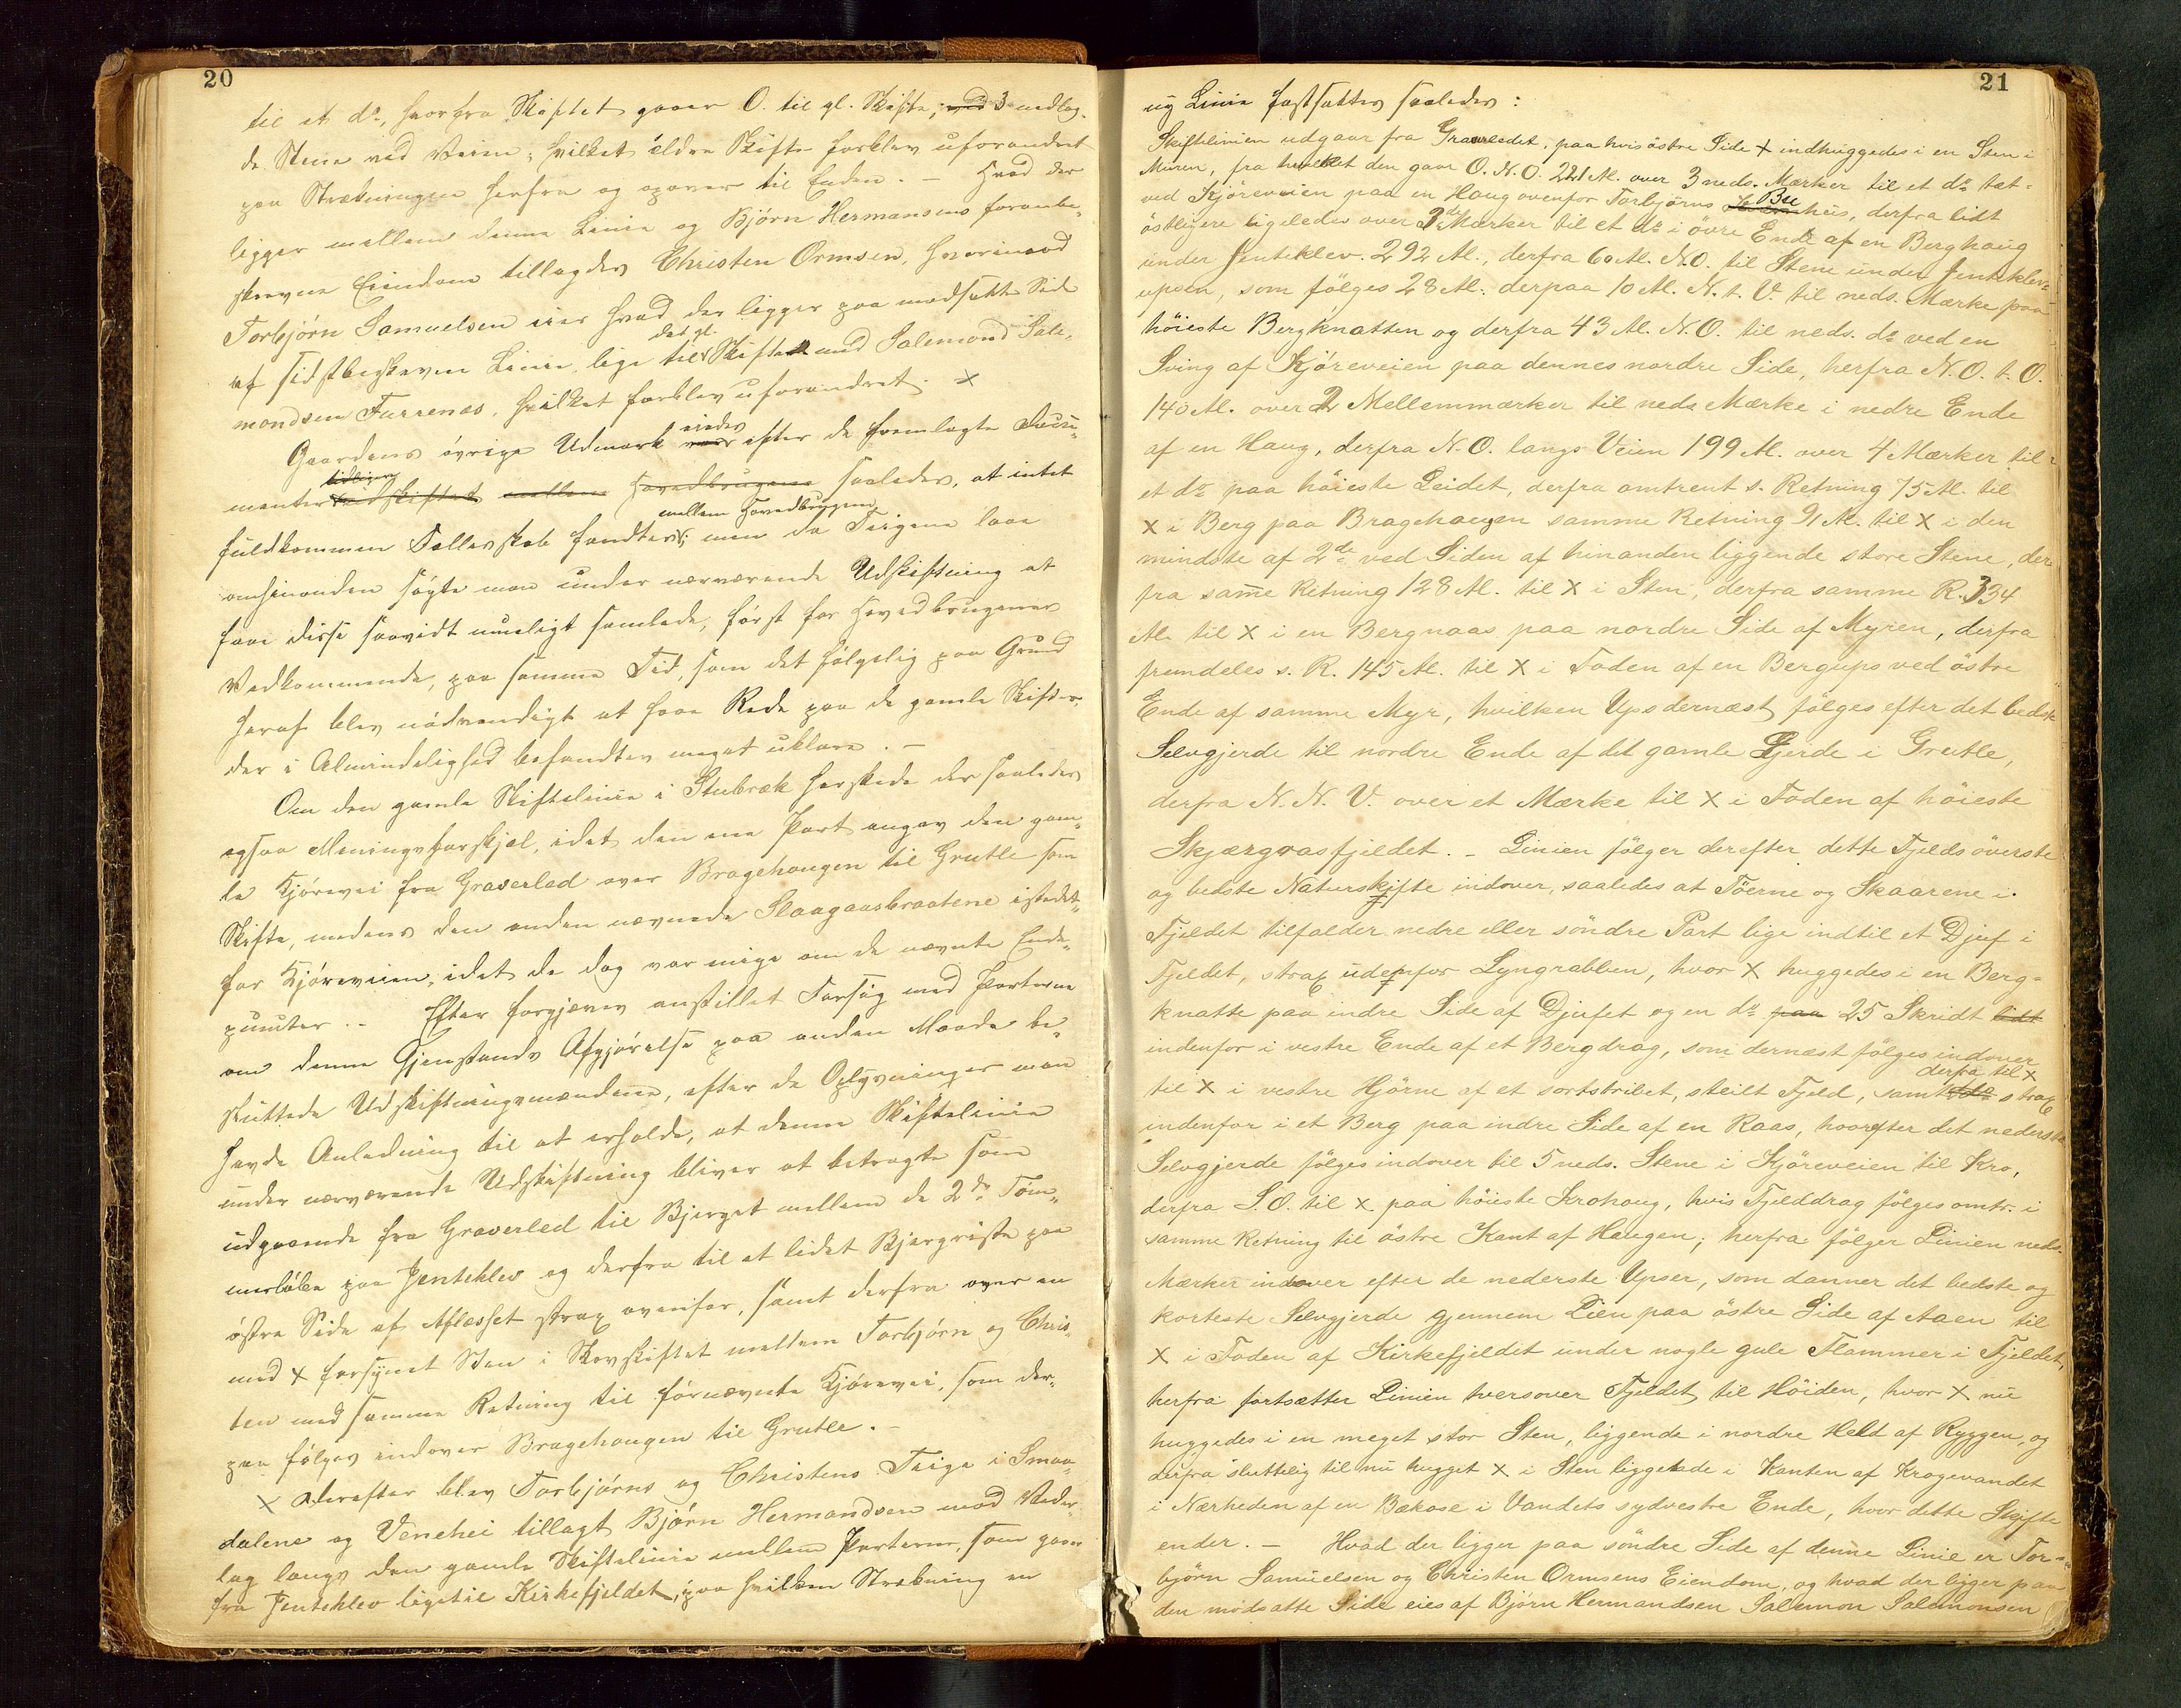 20
til et do, hvorfra Skiftet gaaer O. til gl. Skifte, ved 3 nedlag-
de Stene ved Veien, hvilket ældre Skifte forblev uforandret
paa Strækningen herfra og opover til Enden. — Hvad der
ligger mellem denne Linie og Bjørn Hermansens foranbe-
skrevne Eiendom tillagdes Christen Ormsen, hvorimod
Torbjørn Samuelsen eier hvad der ligger paa modsatte Side
af sidstbeskrevne Linie, lige til det gl. Skifte med Salemond Sale-
mondsen Furrenes, hvilket forblev uforandret. x
Gaardens øvrige Udmark eiedes efter de fremlagte Docu-
menter tidligere udskiftet mellem Hovedbrugene saaledes, at intet
fuldkommen Fællesskab fandtes mellem Hovedbrugene; men da Teigene laae
omhinanden søgte man under nærværende Udskiftning at
faae disse saavidt mueligt samlede, først for Hovedbrugenes
Vedkommende, paa samme Tid, som det følgelig paa Grund
heraf blev nødvendigt at faae Rede paa de gamle Skifter,
der i Almindelighed befandtes meget uklare. —
Om den gamle Skiftelinie i Stubræk herskede der saaledes
ogsaa Meningsforskjel, idet den ene Part angav den gam-
le Kjørevei fra Graverled over Bragehougen til Grutle som
Skifte, medens den anden nævnede Slaagaasbraatene istedet-
for Kjøreveien, idet de dog var enige om de nævnte Ende-
puncter. — Efter forgjæves anstillet Forsøg med Parterne
om denne Gjenstands Afgjørelse paa anden Maade be-
sluttede Udskiftningsmændene, efter de Oplysninger man
havde Anledning til at erholde, at denne Skiftelinie
under nærværende Udskiftning bliver at betragte som
udgaaende fra Graverled til Bjerget mellem de 2de Töm-
merløbe paa Jenteklev og derfra til et lidet Bjergriste paa
østre Side af Aflæsset strax ovenfor, samt derfra over en
med x forsynet Sten i Skovskiftet mellem Torbjørn og Chris-
ten med samme Retning til førnævnte Kjørevei, som der-
paa følges indover Bragehougen til Grutle. —
x Derefter blev Torbjørns og Christens Teige i Smaa-
dalene og Venehei tillagt Bjørn Hermandsen mod Veder-
lag langs den gamle Skiftelinie mellem Parterne, som gaaer
fra Jenteklev ligetil Kirkefjeldet, paa hvilken Strækning en
21
ny Linie fastsattes saaledes:
Skiftelinien udgaar fra Graverledet, paa hvis östre Side x indhuggedes i en Sten i
Muren, fra hvilket den gaar O.N.O. 221 Al. over 3 neds. Mærker til et do tæt-
ved Kjöreveien paa en Haug ovenfor Torbjörns Buhus, derfra lidt
östligere ligeledes over 3de Mærker til et do i övre Ende af en Berghaug
under Jenteklev. 292 Al., derfra 60 Al. N.O. til Stene under Jenteklev-
upsen, som fölges 28 Al. derpaa 10 Al. N.t.V. til neds. Mærke paa
höieste Bergknatten og derfra 43 Al. N.O. til neds. do ved en
Sving af Kjöreveien paa dennes nordre Side, herfra N.O.t.O.
140 Al. over 2 Mellemmærker til neds Mærke i nedre Ende
af en Haug, derfra N.O. langs Veien 199 Al. over 4 Mærker til
et do paa höieste Leidet, derfra omtrent s. Retning 75 Al. til
x i Berg paa Bragehaugen samme Retning 91 Al. til x i den
mindste af 2de ved Siden af hinanden liggende store Stene, der-
fra samme Retning 128 Al. til x i Sten, derfra samme R. 334
Al. til x i en Bergnaas paa nordre Side af Myren, derfra
fremdeles s. R. 145 Al. til x i Foden af en Bergups ved östre
Ende af samme Myr, hvilken Ups dernæst fölges efter det bedste
Selvgjerde til nordre Ende af det gamle Gjerde i Grutle,
derfra N.N.V. over et Mærke til x i Foden af höieste
Skjærgraasfjeldet. — Linien fölger derefter dette Fjelds överste
og bedste Naturskifte indover, saaledes at Töerne og Skaarene i
Fjeldet tilfalder nedre eller söndre Part lige indtil et Djuf i
Fjeldet, strax udenfor Lyngrabben, hvor x huggedes i en Berg-
knatte paa indre Side af Djufet og en do paa 25 Skridt lidt
indenfor i vestre Ende af et Bergdrag, som dernæst fölges indover
til x i vestre Hjörne af et sortstribet, steilt Fjeld, samt derfra til x strax
indenfor i et Berg paa indre Side af en Raas, hvorefter det nederste
Selvgjerde fölges indover til 5 neds. Stene i Kjöreveien til Kro,
derfra S.O. til x paa höieste Krohaug, hvis Fjelddrag fölges omtr. i
samme Retning til östre Kant af Haugen; herfra fölger Linien neds.
Mærker indover efter de nederste Upser, som danner det bedste og
korteste Selvgjerde gjennem Lien paa östre Side af Aaen til
x i Foden af Kirkefjeldet under nogle gule Flammer i Fjeldet,
herfra fortsætter Linien tversover Fjeldet til Höiden, hvor x nu
huggedes i en meget stor Sten, liggende i nordre Held af Ryggen, og
derfra sluttelig til nu hugget x i Sten liggende i Kanten af Krogevandet
i Nærheden af en Bækose i Vandets sydvestre Ende, hvor dette Skifte
ender. — Hvad der ligger paa söndre Side af denne Linie er Tor-
björn Samuelsen og Christen Ormsens Eiendom, og hvad der ligger paa
den modsatte Side eies af Björn Hermandsen Salemon Salemonsen